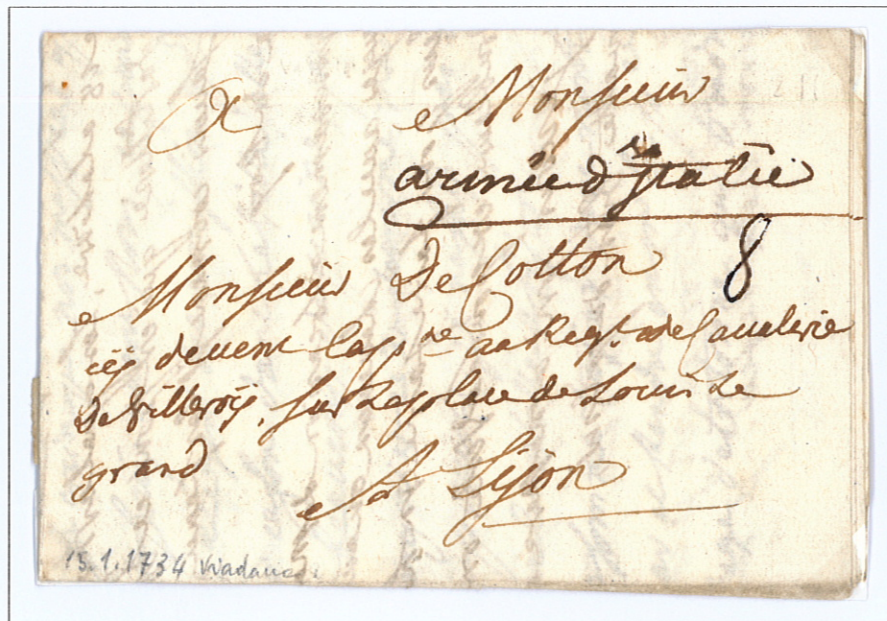 A Monsieur
armée d'Italie
8
Monsieur De Cotton
cy devent Cap.ne au Reg.t de Cavalerie
De Villeroÿ, sur La place de Louis Le
grand
A Lÿon
15.1.1734 Viadana